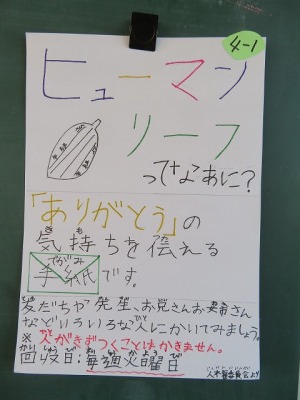 4-1
ヒューマン
リーフ
ってなあに?
「ありがとう」の
気持ちを伝える
手紙です。
友だちや先生、お兄さんお姉さん
などいろいろな人にかいてみましょう。
※人がきずつくことはかきません。
回収日:毎週火曜日
人権委員会より